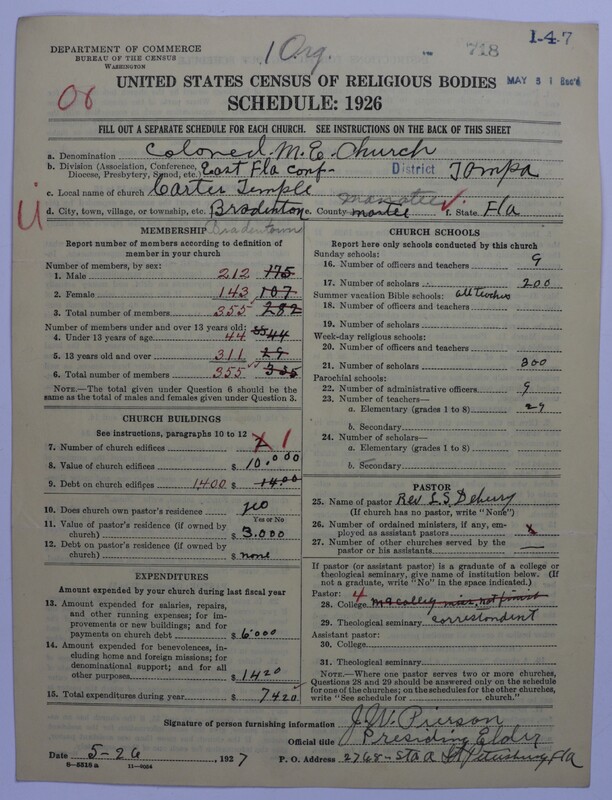 1 Org. 718 1-4-7
DEPARTMENT OF COMMERCE
BUREAU OF THE CENSUS
WASHINGTON
MAY 31 Rec'd
UNITED STATES CENSUS OF RELIGIOUS BODIES
SCHEDULE: 1926
FILL OUT A SEPARATE SCHEDULE FOR EACH CHURCH. SEE INSTRUCTIONS ON THE BACK OF THIS SHEET
a. Denomination Colored M. E. Church
b. Division (Association, Conference, Diocese, Presbytery, Synod, etc.) East Fla Conf- District Tampa
c. Local name of church Carter Temple
d. City, town, village, or township, etc. Bradentone County Manatee f. State Fla
Bradentown
MEMBERSHIP
Report number of members according to definition of
member in your church
Number of members, by sex:
1. Male 212 175
2. Female 143 107
3. Total number of members 355 282
Number of members under and over 13 years old:
4. Under 13 years of age 44 44
5. 13 years old and over 311
6. Total number of members 355
NOTE.—The total given under Question 6 should be the
same as the total of males and females given under Question 3.
CHURCH BUILDINGS
See instructions, paragraphs 10 to 12
7. Number of church edifices 1
8. Value of church edifices $ 10.000
9. Debt on church edifices 1400 $ 14.00
10. Does church own pastor's residence
Yes or No
11. Value of pastor's residence (if owned by
church) $ 3.000
12. Debt on pastor's residence (if owned by
church) $ none
EXPENDITURES
Amount expended by your church during last fiscal year
13. Amount expended for salaries, repairs,
and other running expenses; for im-
provements or new buildings; and for
payments on church debt $ 6000
14. Amount expended for benevolences,
including home and foreign missions; for
denominational support; and for all
other purposes $ 1420
15. Total expenditures during year $ 7420
CHURCH SCHOOLS
Report here only schools conducted by this church
Sunday schools:
16. Number of officers and teachers 9
17. Number of scholars 200
Summer vacation Bible schools:
18. Number of officers and teachers
19. Number of scholars
Week-day religious schools:
20. Number of officers and teachers
21. Number of scholars 300
Parochial schools:
22. Number of administrative officers 9
23. Number of teachers—
a. Elementary (grades 1 to 8) 29
b. Secondary
24. Number of scholars—
a. Elementary (grades 1 to 8)
b. Secondary
PASTOR
25. Name of pastor Rev L. S.
(If church has no pastor, write "None")
26. Number of ordained ministers, if any, em-
ployed as assistant pastors
27. Number of other churches served by the
pastor or his assistants —
If pastor (or assistant pastor) is a graduate of a college or
theological seminary, give name of institution below. (If
not a graduate, write "No" in the space indicated.)
Pastor: 4
28. College not finist
29. Theological seminary correstondent
Assistant pastor:
30. College
31. Theological seminary
NOTE.—Where one pastor serves two or more churches,
Questions 28 and 29 should be answered only on the schedule
for one of the churches; on the schedules for the other churches,
write "See schedule for church."
Signature of person furnishing information J. W. Pierson
Official title Presiding Elder
Date 5-26, 1927 P. O. Address 2768- Sta a St Petersburg Fla
8-5310 a 11-9064